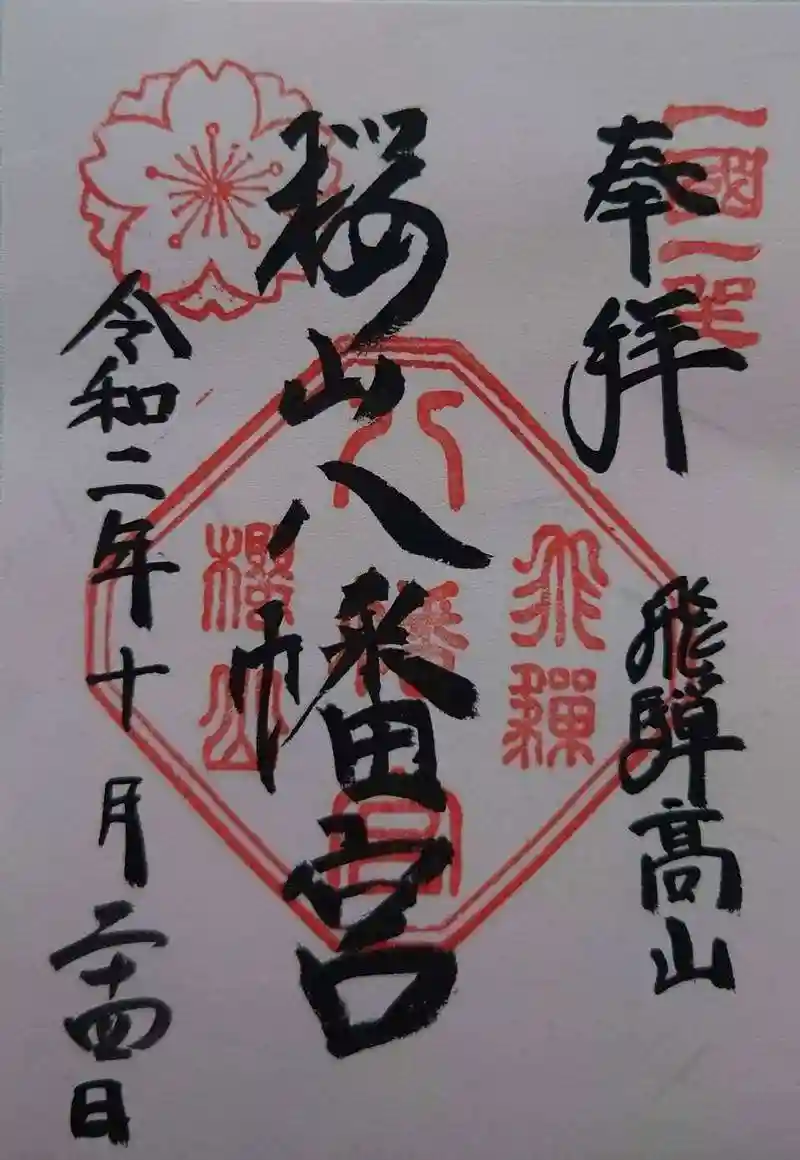 一國一
奉拝
飛騨高山
桜山八幡宮
令和二年十月二十四日
飛驒
八幡宮
櫻山